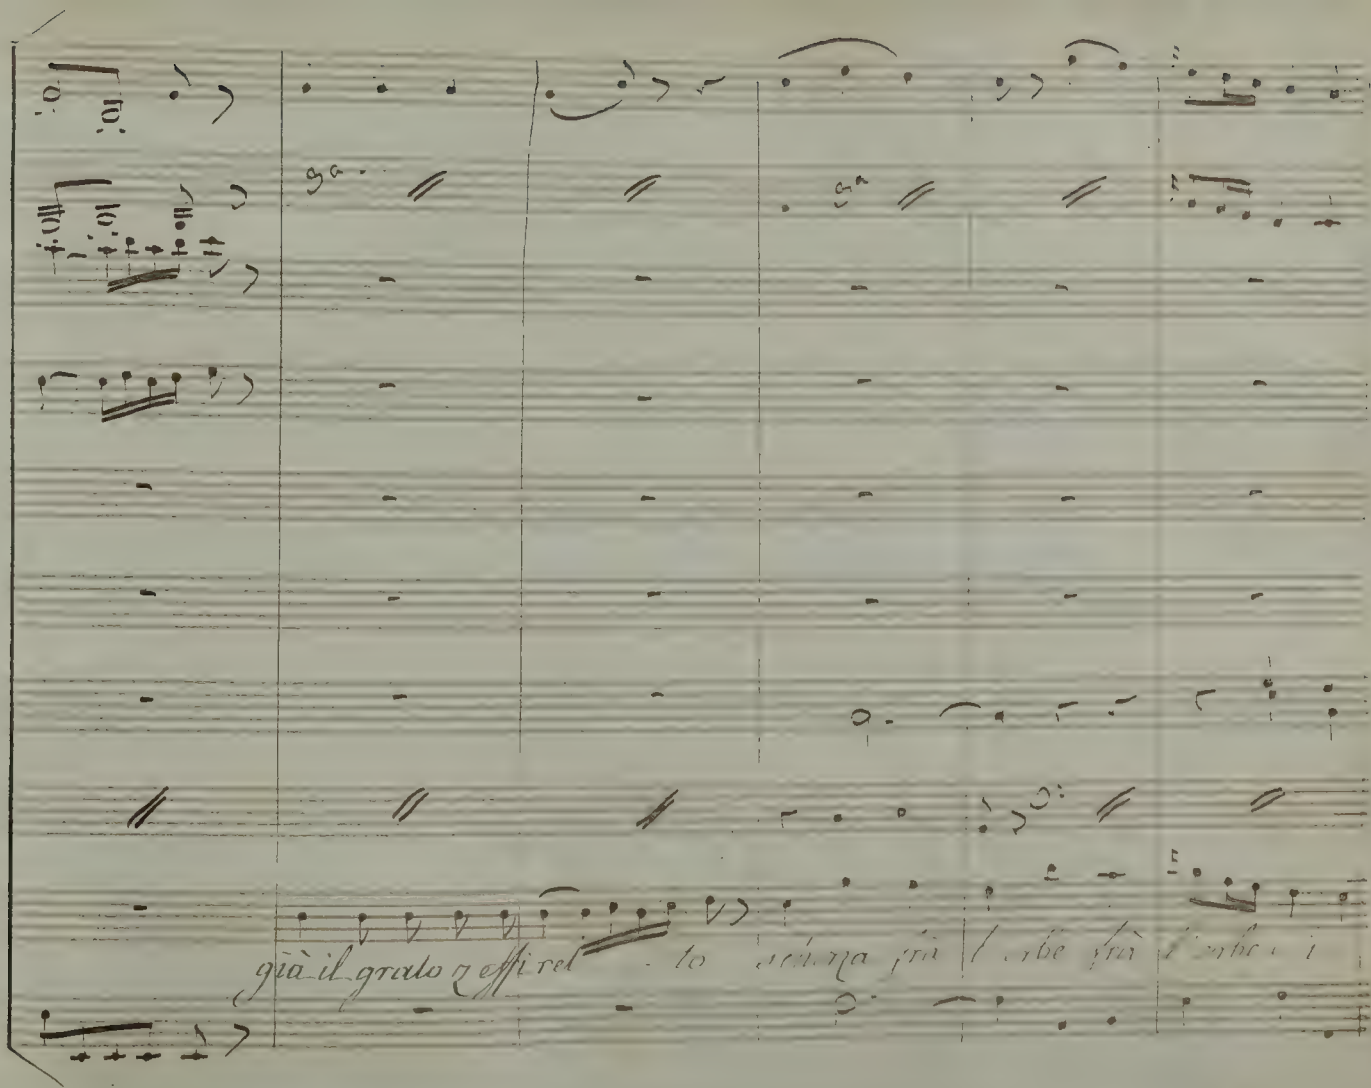 8a..
8a
già il grato zeffiret - to scherza frà l'erbe frà l'erbe e i